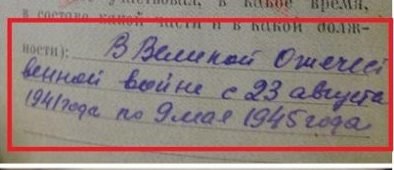 участвовал, в какое время,
в составе какой части и в какой долж-
ности): В Великой Отечест
венной войне с 23 августа
1941 года по 9 мая 1945 года